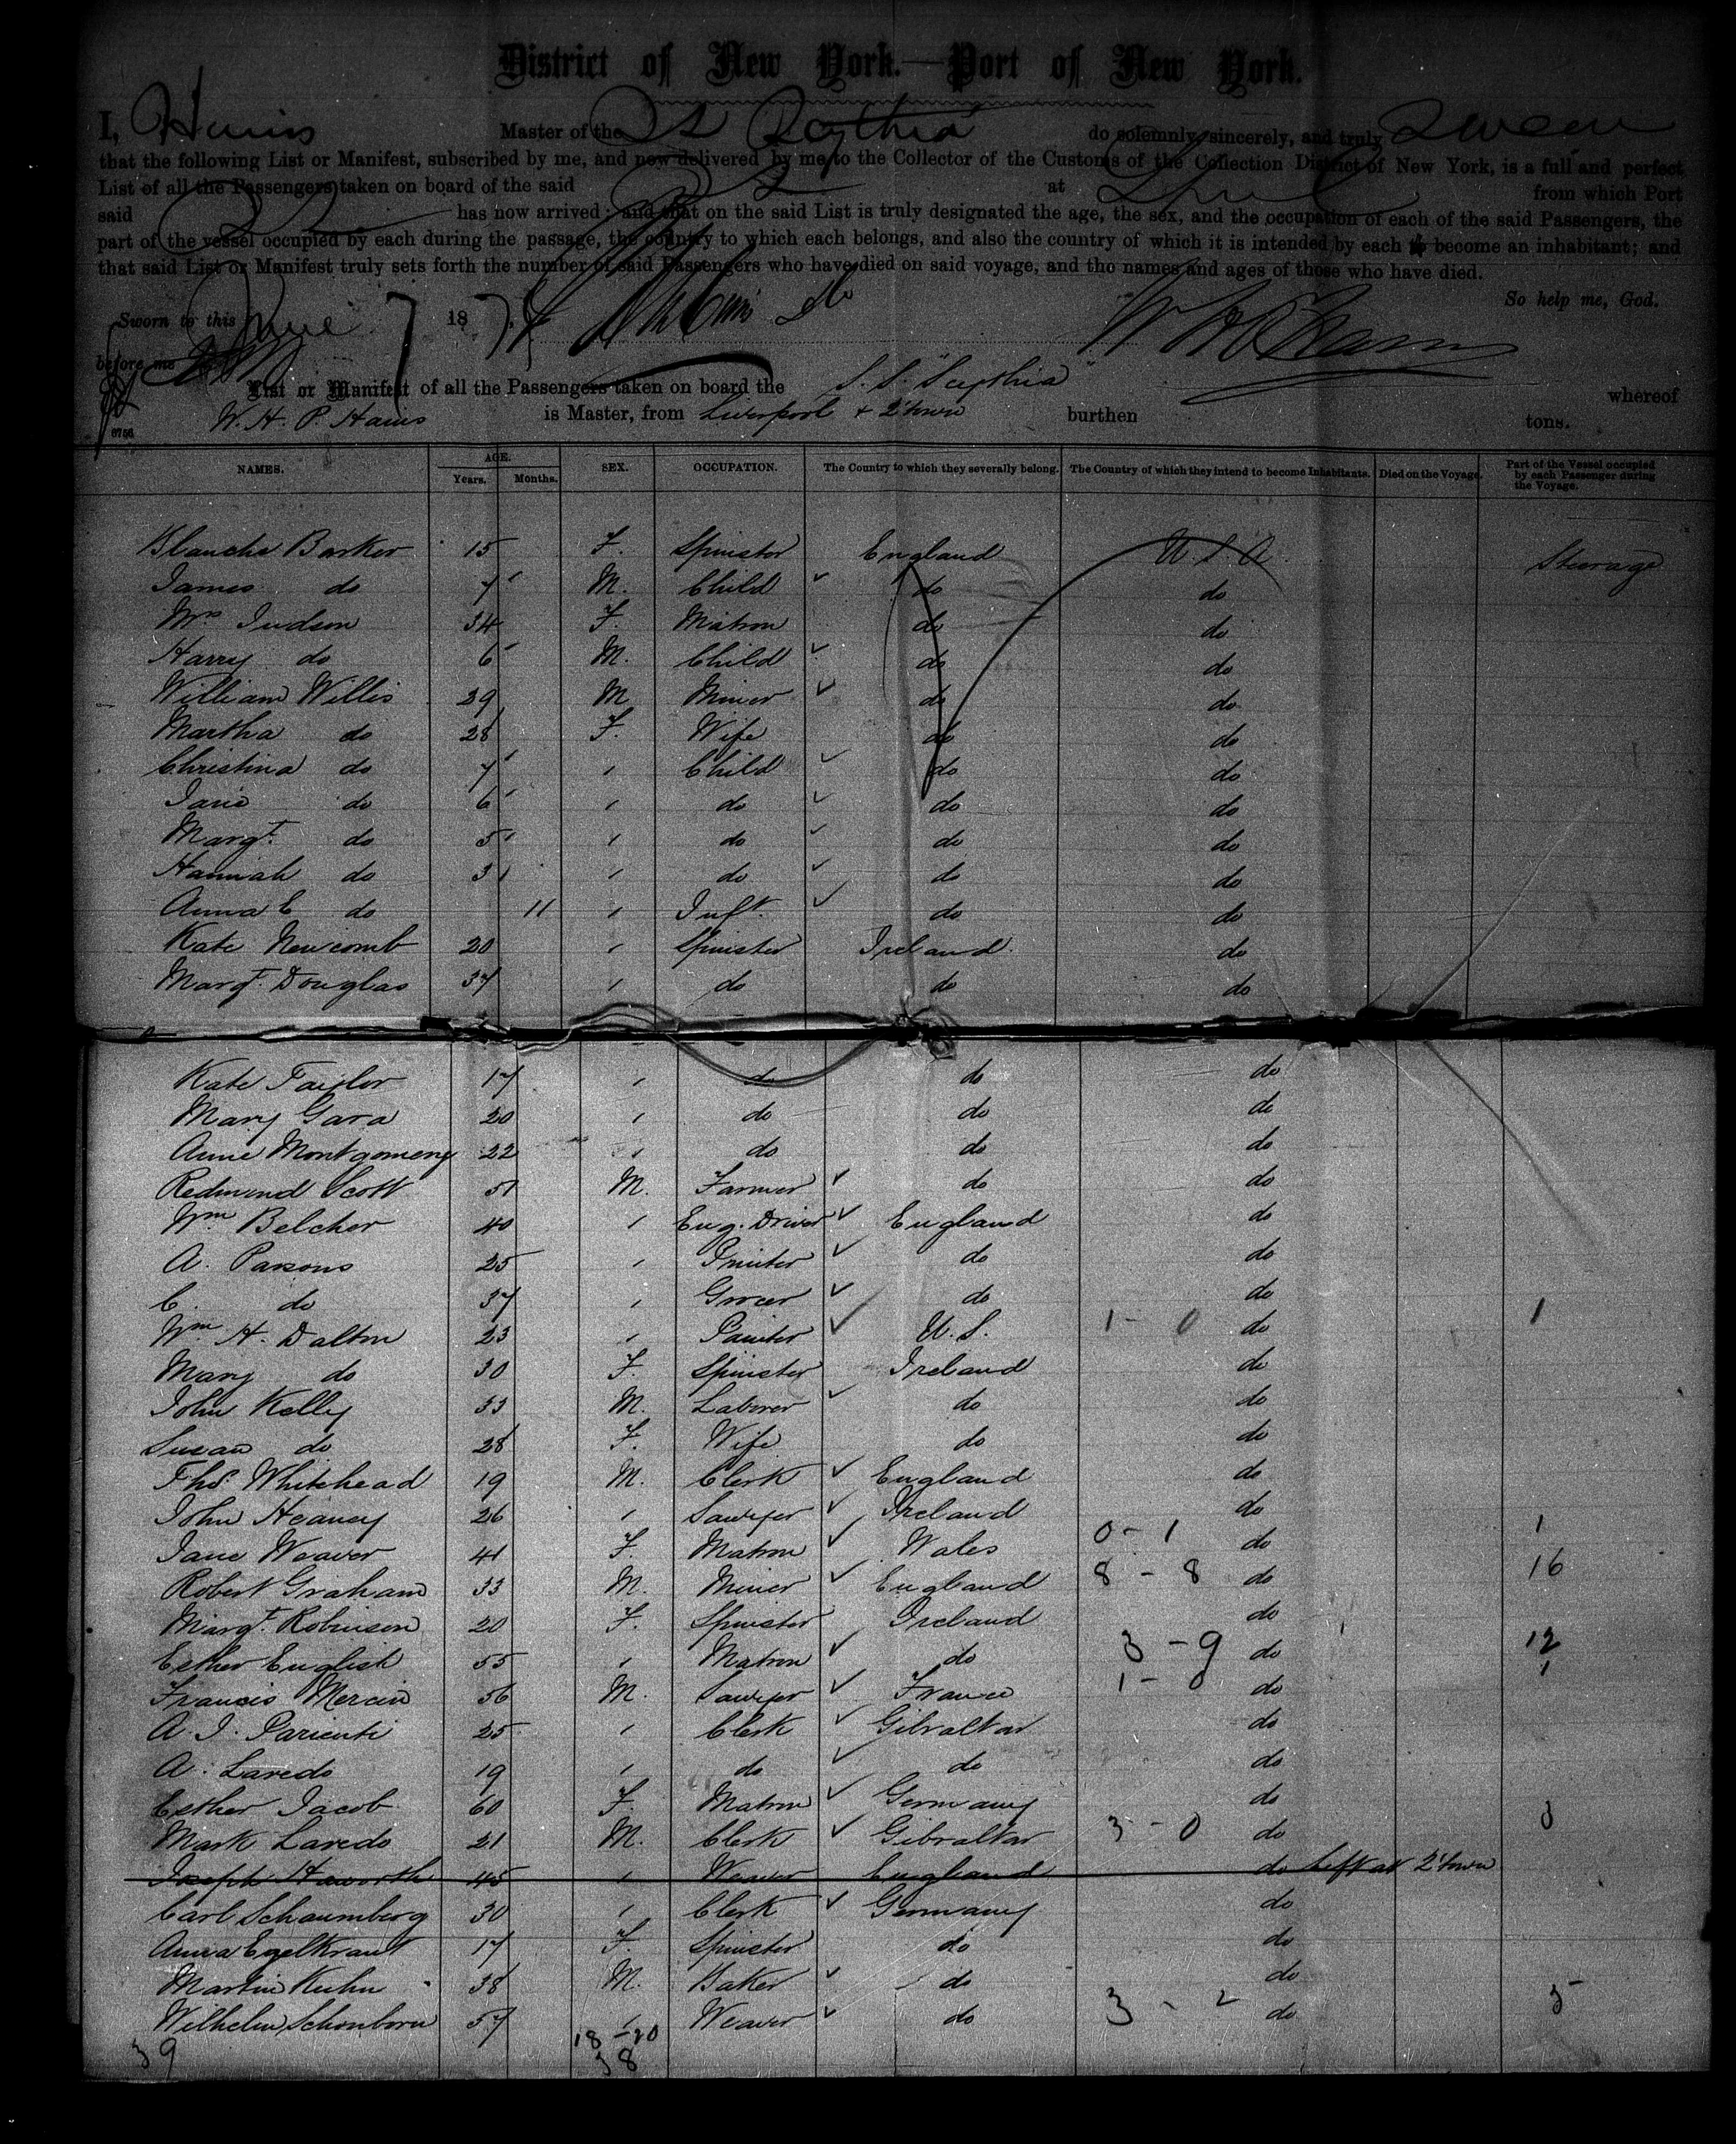 District of New York.—Port of New York.
I, Master of the SS Scythia do solemnly, sincerely, and truly swear
that the following List or Manifest, subscribed by me, and now delivered by me to the Collector of the Customs of the Collection District of New York, is a full and perfect
List of all the Passengers taken on board of the said at from which Port
said has now arrived; and that on the said List is truly designated the age, the sex, and the occupation of each of the said Passengers, the
part of the vessel occupied by each during the passage, the country to which each belongs, and also the country of which it is intended by each to become an inhabitant; and
that said List or Manifest truly sets forth the number of said Passengers who have died on said voyage, and the names and ages of those who have died.
So help me, God.
Sworn to this June 7 187
before me
List or Manifest of all the Passengers taken on board the S.S. "Scythia" whereof
W. H. P. Hains is Master, from Liverpool & Q'town burthen tons.
6756
NAMES. AGE. Years. Months. SEX. OCCUPATION. The Country to which they severally belong. The Country of which they intend to become Inhabitants. Died on the Voyage. Part of the Vessel occupied by each Passenger during the Voyage.
Blanche Barker 15 F. Spinster England U.S.A. Steerage
James do 7 M. Child do do
Mrs Judson 34 F. Matron do do
Harry do 6 M. Child do do
William Willis 29 M Miner do do
Martha do 28 F. Wife do do
Christina do 7 " Child do do
Jane do 6 " do do do
Margt. do 5 " do do do
Hannah do 3 " do do do
Anna E do 11 " Inft. do do
Kate Newcomb 20 " Spinster Ireland do
Margt. Douglas 37 " do do do
Kate Taylor 17 " do do do
Mary Gara 20 " do do do
Annie Montgomery 22 " do do do
Redmond Scott 51 M. Farmer do do
Wm Belcher 40 " Eng. Driver England do
A. Parsons 25 " Printer do do
C. do 37 " Grocer do do
Wm. H. Dalton 23 " Painter U.S. 1 - 0 do 1
Mary do 30 F. Spinster Ireland do
John Kelly 33 M. Laborer do do
Susan do 28 F. Wife do do
Thos. Whitehead 19 M. Clerk England do
John Heaney 26 " Sawyer Ireland do
Jane Weaver 41 F. Matron Wales 0 - 1 do 1
Robert Graham 33 M. Miner England 8 - 8 do 16
Margt. Robinson 20 F. Spinster Ireland do
Esther English 55 " Matron do 3 - 9 do 12
Francis Mercin 56 M. Sawyer France 1 - 0 do 1
A. J. Pariente 25 " Clerk Gibraltar do
A. Laredo 19 " do do do
Esther Jacob 60 F. Matron Germany do
Mark Laredo 21 M. Clerk Gibraltar 3 - 0 do 3
Joseph Haworth 45 " Weaver England do Left at Q'town
Carl Schaumberg 30 " Clerk Germany do
Anna Egelkraut 17 F. Spinster do do
Martin Kuhn 38 M. Baker do do
Wilhelm Schonborn 57 " Weaver do 3 - 2 do 5
39 18 - 20
38